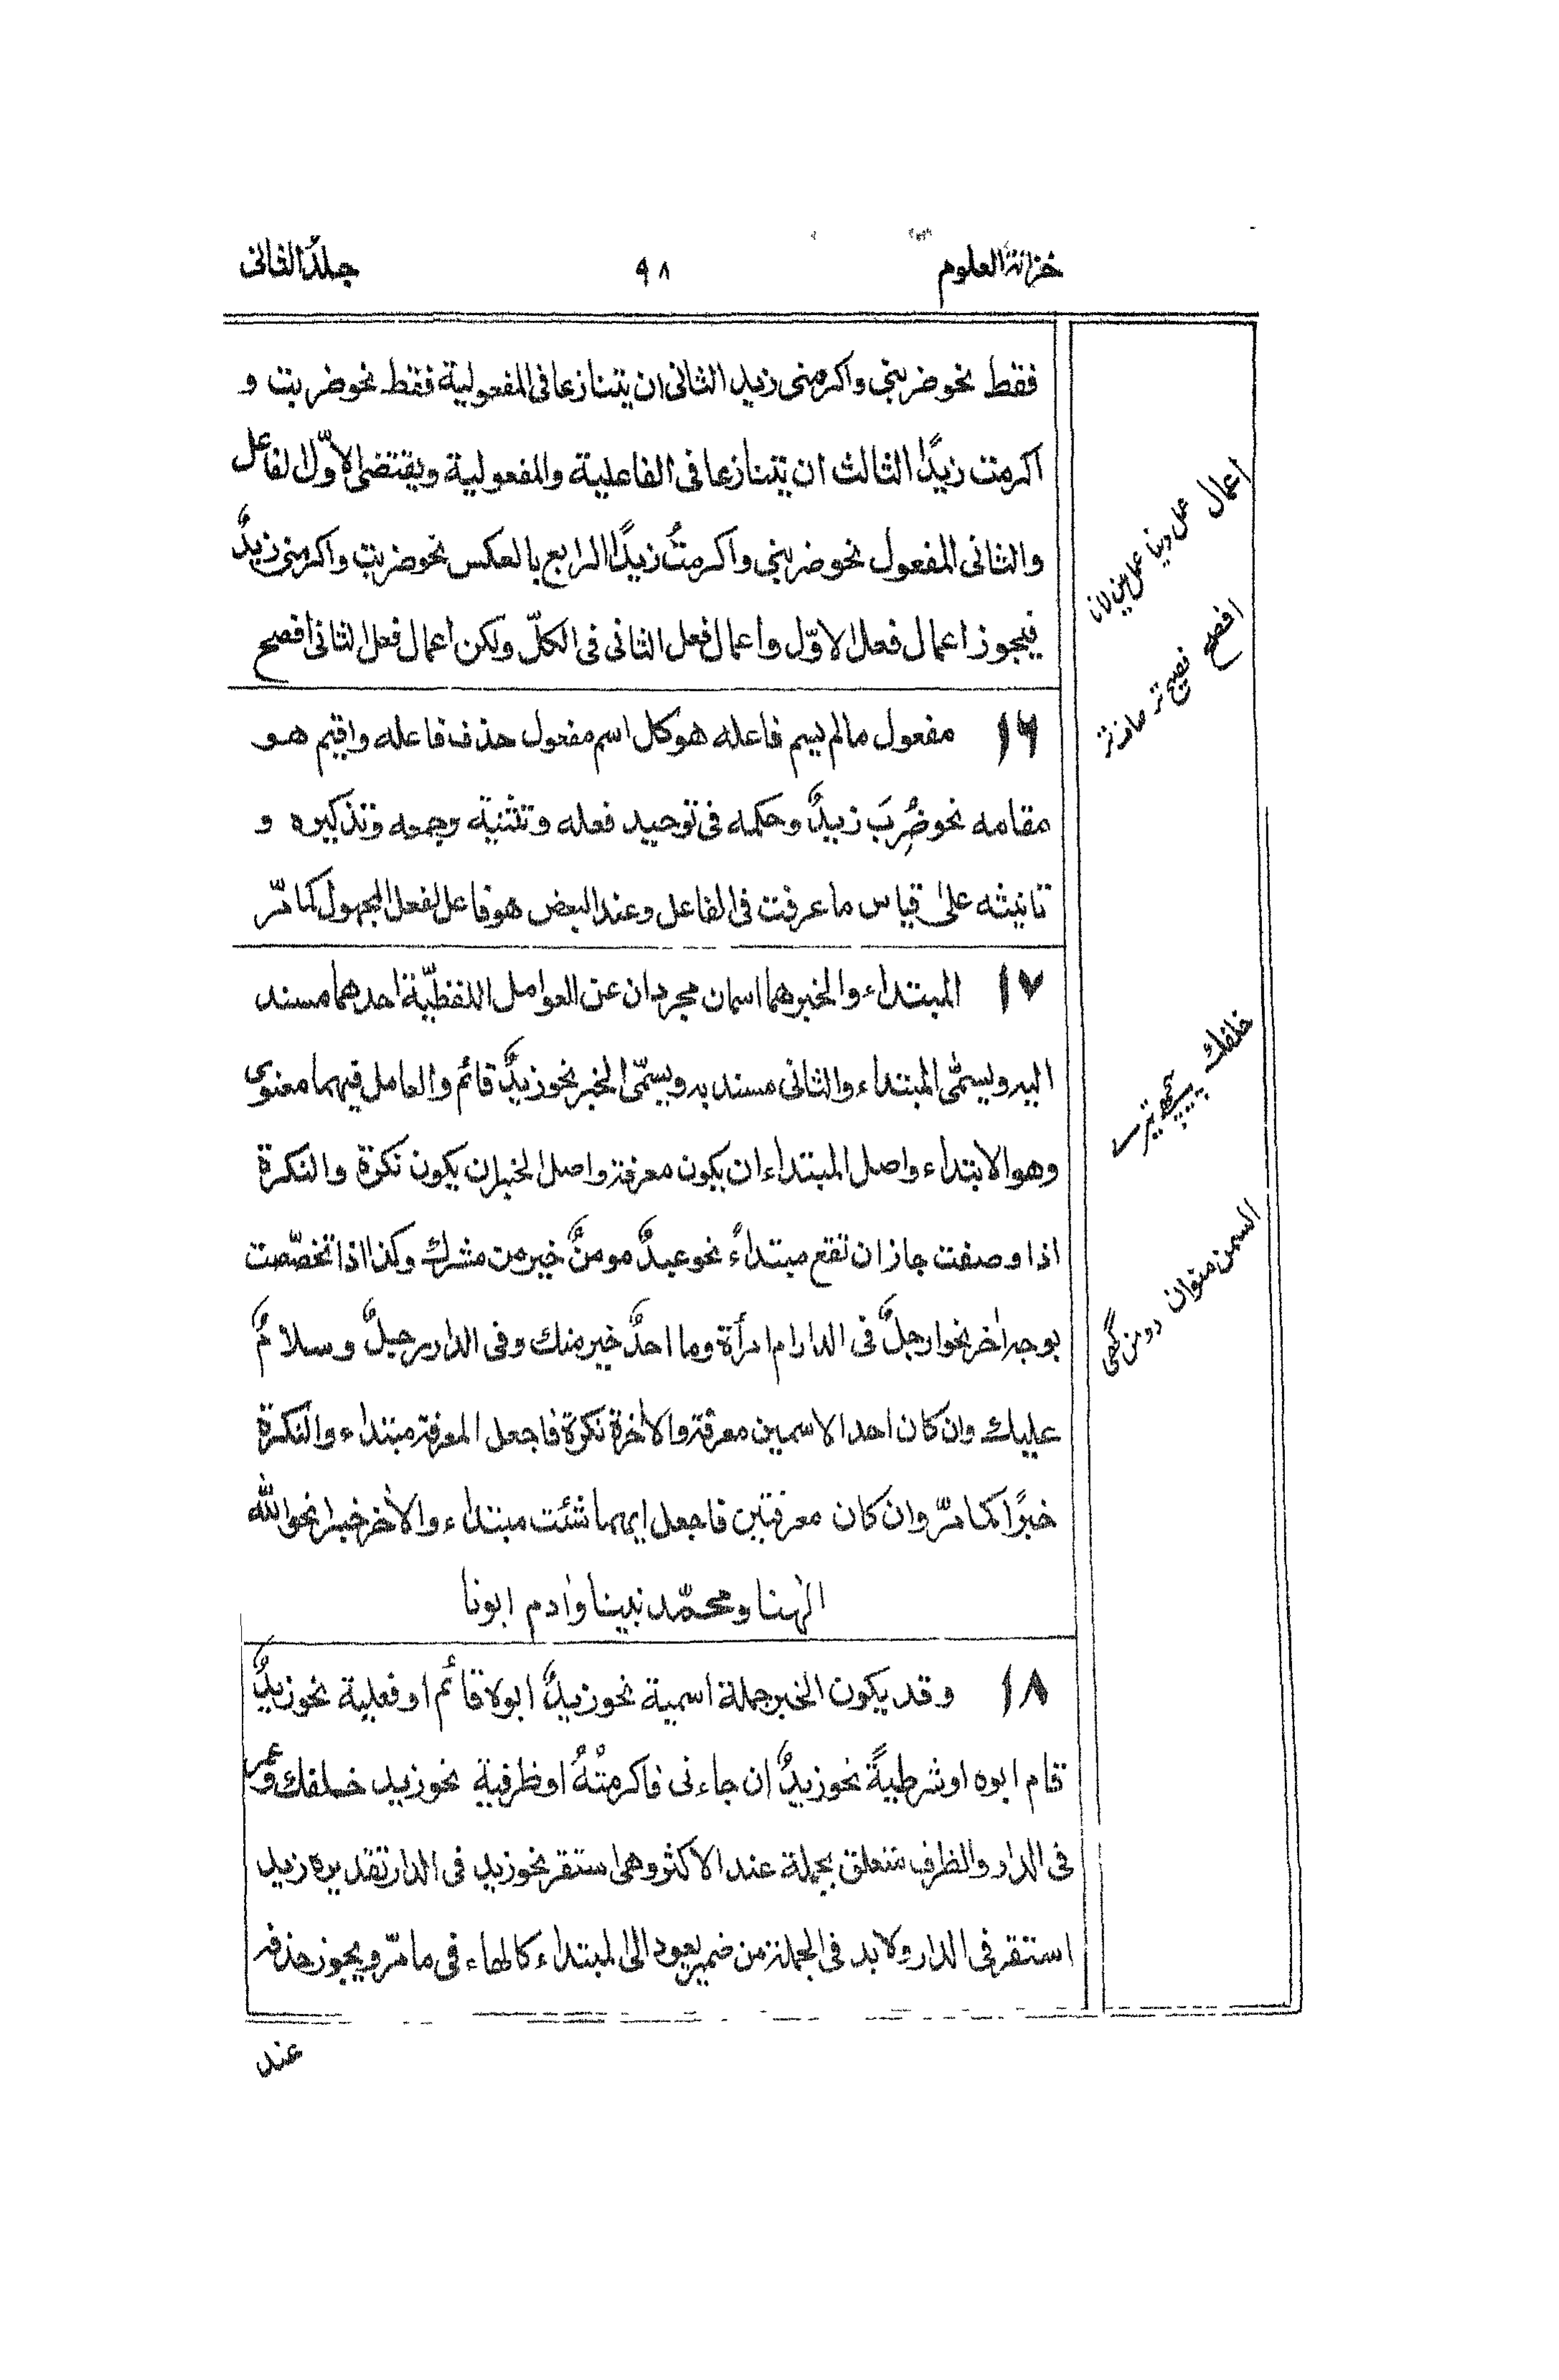 خزانة العلوم ٩٨ جلد الثانی
فقط نحو ضربنی واکرمنی زید الثانی ان یتنازعا فی المفعولیة فقط نحو ضربت و
اکرمت زیدًا الثالث ان یتنازعا فی الفاعلیة والمفعولیة ویقتضی الاوّل الفاعل
والثانی المفعول نحو ضربنی واکرمتُ زیدًا الرابع بالعکس نحو ضربت واکرمنی زیدٌ
فیجوز اعمال فعل الاوّل واعمال فعل الثانی فی الکلّ ولکن اعمال فعل الثانی افصح
١٦ مفعول مالم یسم فاعله هو کل اسم مفعول حذف فاعله واقیم هو
مقامه نحو ضُرِبَ زیدٌ وحکمه فی توحید فعله وتثنیة وجمعه وتذکیره و
تانیثه علی قیاس ما عرفت فی الفاعل وعند البعض هو فاعل لفعل المجهول کما مّر
١٧ المبتداء والخبر هما اسمان مجردان عن العوامل اللفظیّة احدهما مسند
الیه ویسمّی المبتداء والثانی مسند به ویسمّی الخبر نحو زیدٌ قائم والعامل فیهما معنوی
وهو الابتداء واصل المبتداء ان یکون معرفة واصل الخبر ان یکون نکرة والنکرة
اذا وصفت جاز ان تقع مبتداءً نحو عبدٌ مومنٌ خیر من مشرك وکذا اذا تخصّصت
بوجه اٰخر نحو ارجلٌ فی الدار ام امرأة وما احدٌ خیر منك وفی الدار رجلٌ وسلامٌ
علیك وان کان احد الاسمین معرفة والاٰخرة نکرة فاجعل المعرفة مبتداء والنکرة
خبرًا کما مّر وان کان معرفتین فاجعل ایهما شئت مبتداء والاٰخر خبرا نحو الله
الٰهنا ومحمّد نبینا واٰدم ابونا
١٨ وقد یکون الخبر جملة اسمیة نحو زیدٌ ابوه قائم او فعلیة نحو زیدٌ
قام ابوه او شرطیةً نحو زیدٌ ان جاءنی فاکرمتهُ او ظرفیة نحو زید خلفك وعمر
فی الدار والظرف متعلق بجملة عند الاکثر وهی استقر نحو زید فی الدار تقدیره زید
استقر فی الدار ولا بد فی الجملة من ضمیر یعود الی المبتداء کالهاء فی ما مّر ویجوز حذفه
عند
اعمال عمل دینا عمل مین لانا
افصح فصیح تر صاف تر
خلفك پیچھے تیرے
السمن منوان دو من گھی